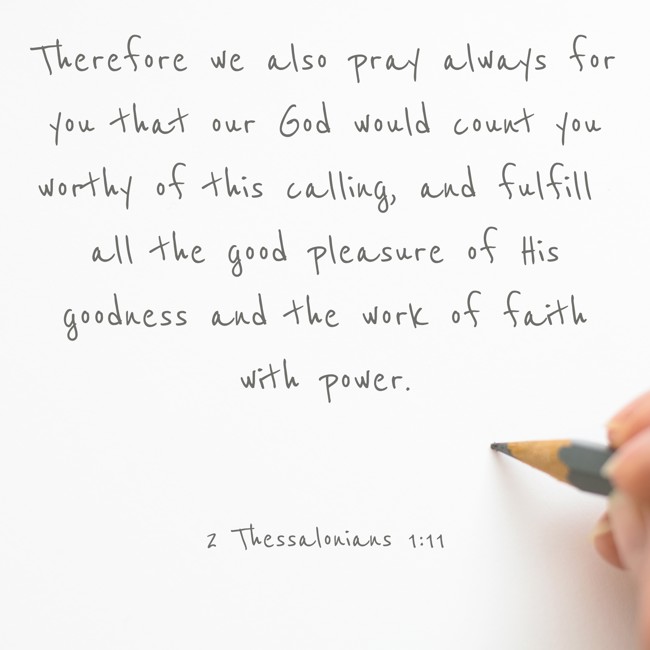 Therefore we also pray always for
you that our God would count you
worthy of this calling, and fulfill
all the good pleasure of His
goodness and the work of faith
with power.
2 Thessalonians 1:11